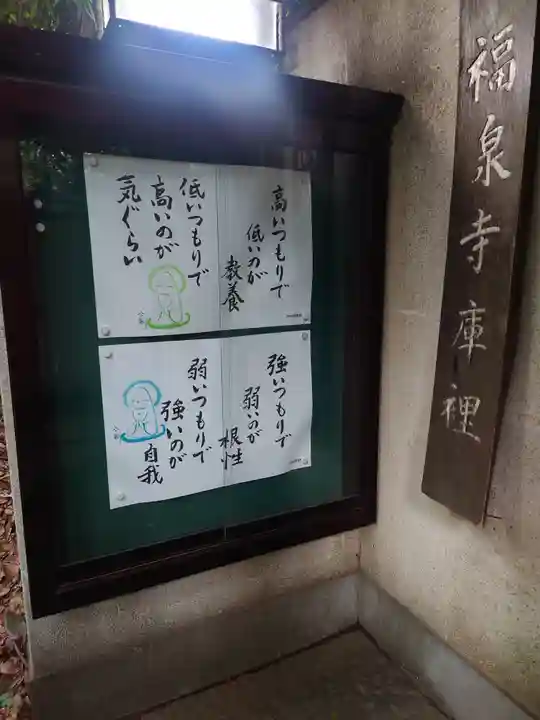 福泉寺庫裡
高いつもりで
低いのが
教養
低いつもりで
高いのが
気ぐらい
強いつもりで
弱いのが
根性
弱いつもりで
強いのが
自我